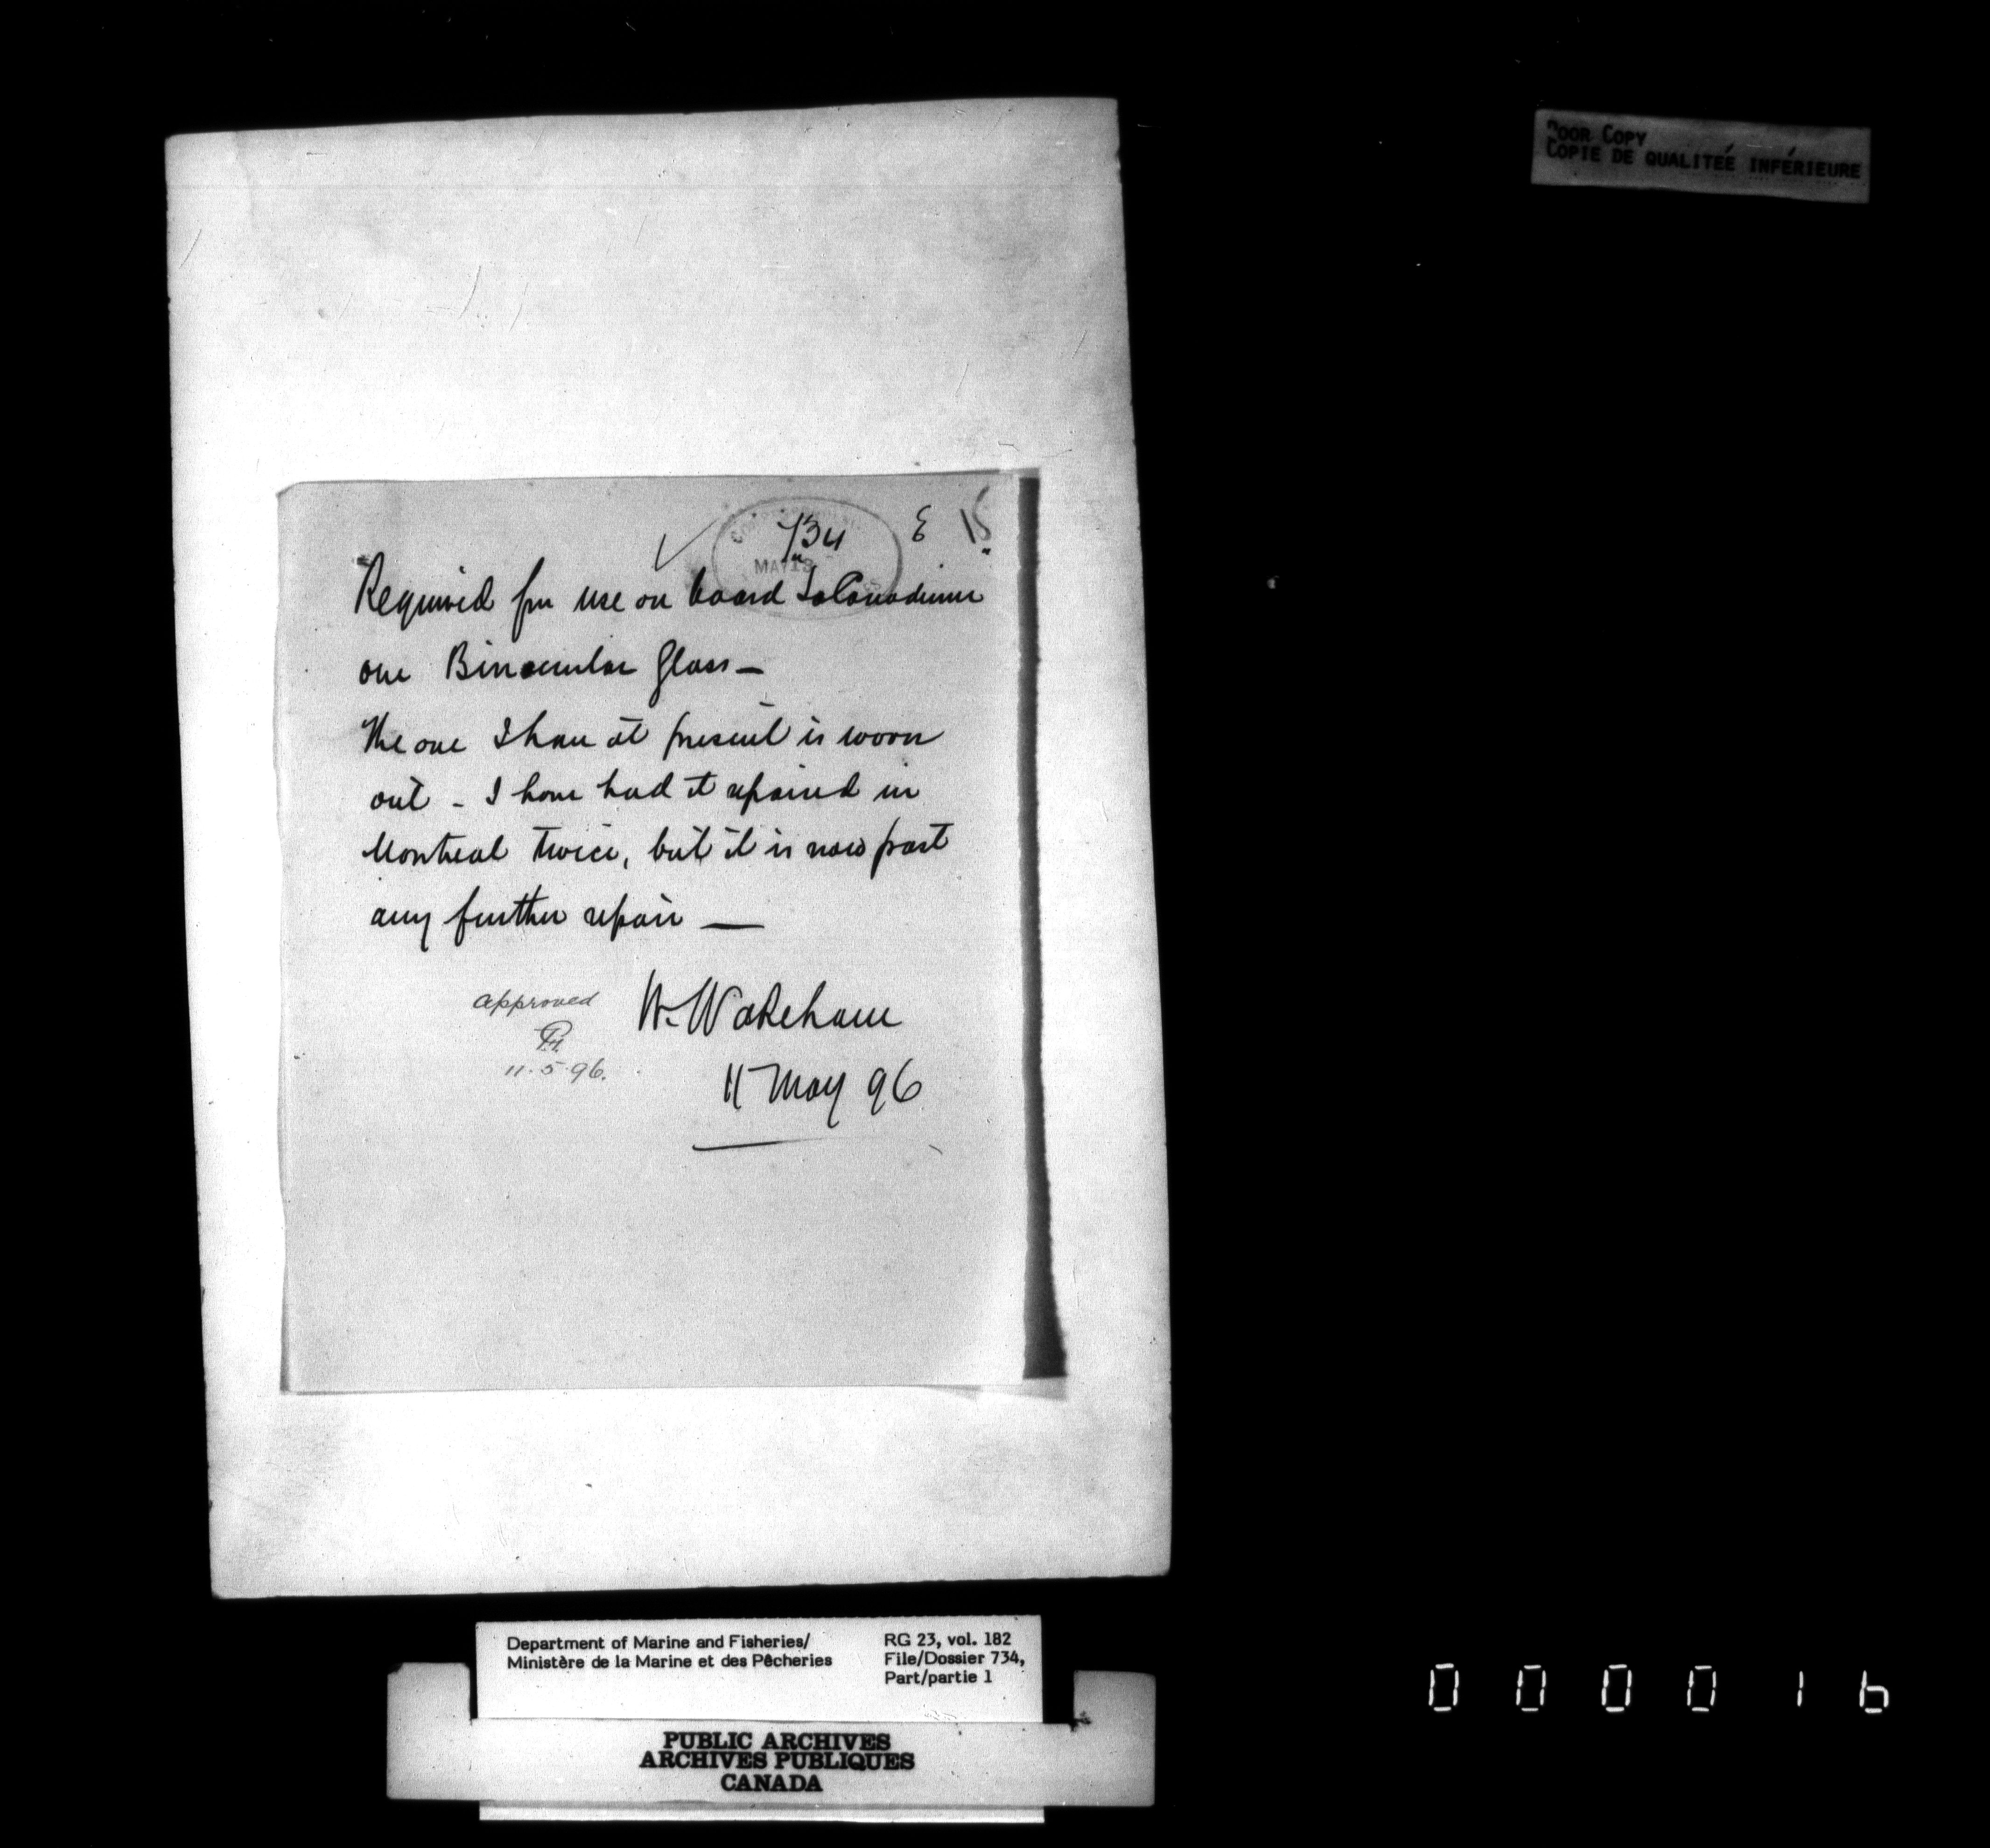 POOR COPY
COPIE DE QUALITEÉ INFÉRIEURE
734 E 15
MAY 13
Required for use on board La Canadienne
one Binocular Glass —
The one I have at present is worn
out - I have had it repaired in
Montreal twice, but it is now past
any further repair —
W. Wakeham
11 May 96
approved
11.5.96.
Department of Marine and Fisheries/
Ministère de la Marine et des Pêcheries
RG 23, vol. 182
File/Dossier 734,
Part/partie 1
PUBLIC ARCHIVES
ARCHIVES PUBLIQUES
CANADA
0 0 0 0 1 6